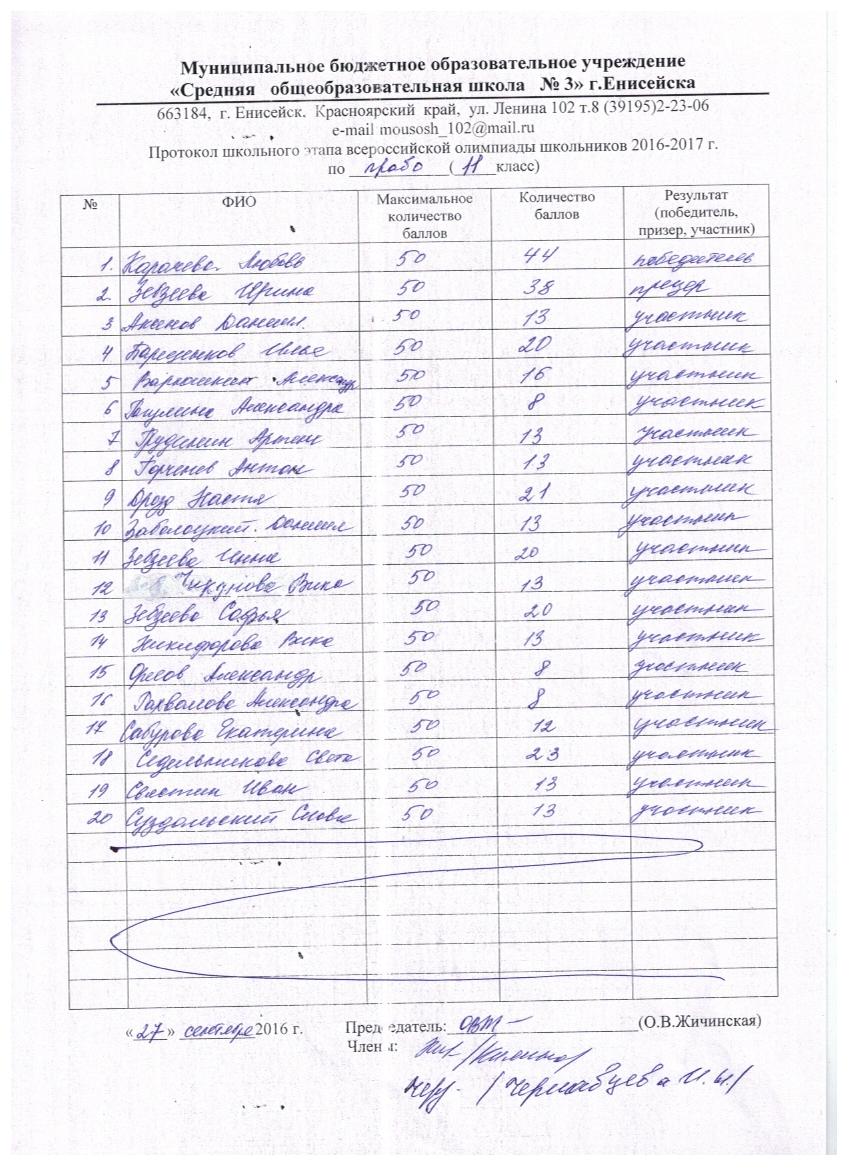 Муниципальное бюджетное образовательное учреждение
«Средняя общеобразовательная школа № 3» г.Енисейска
663184, г. Енисейск. Красноярский край, ул. Ленина 102 т.8 (39195)2-23-06
e-mail mousosh_102@mail.ru
Протокол школьного этапа всероссийской олимпиады школьников 2016-2017 г.
по право ( 11 класс)
№ ФИО Максимальное количество баллов Количество баллов Результат (победитель, призер, участник)
1. Карачева Любовь 50 44 победитель
2. Зебзеева Ирина 50 38 призер
3 Аксенов Даниил. 50 13 участник
4 Илья 50 20 участник
5 Александр 50 16 участник
6 Александра 50 8 участник
7 Артем 50 13 участник
8 Горченев Антон 50 13 участник
9 Дрозд Настя 50 21 участник
10 Заболоцкий Даниил 50 13 участник
11 Зебзеева Инна 50 20 участник
12 Вика 50 13 участник
13 Зебзеева Софья 50 20 участник
14 Никифорова Вика 50 13 участник
15 Фесов Александр 50 8 участник
16 Александра 50 8 участник
17 Сабурова Екатерина 50 12 участник
18 Седельникова Света 50 23 участник
19 Иван 50 13 участник
20 Суздальский Слава 50 13 участник
«27» сентября 2016 г. Председатель: (О.В.Жичинская)
Члены: